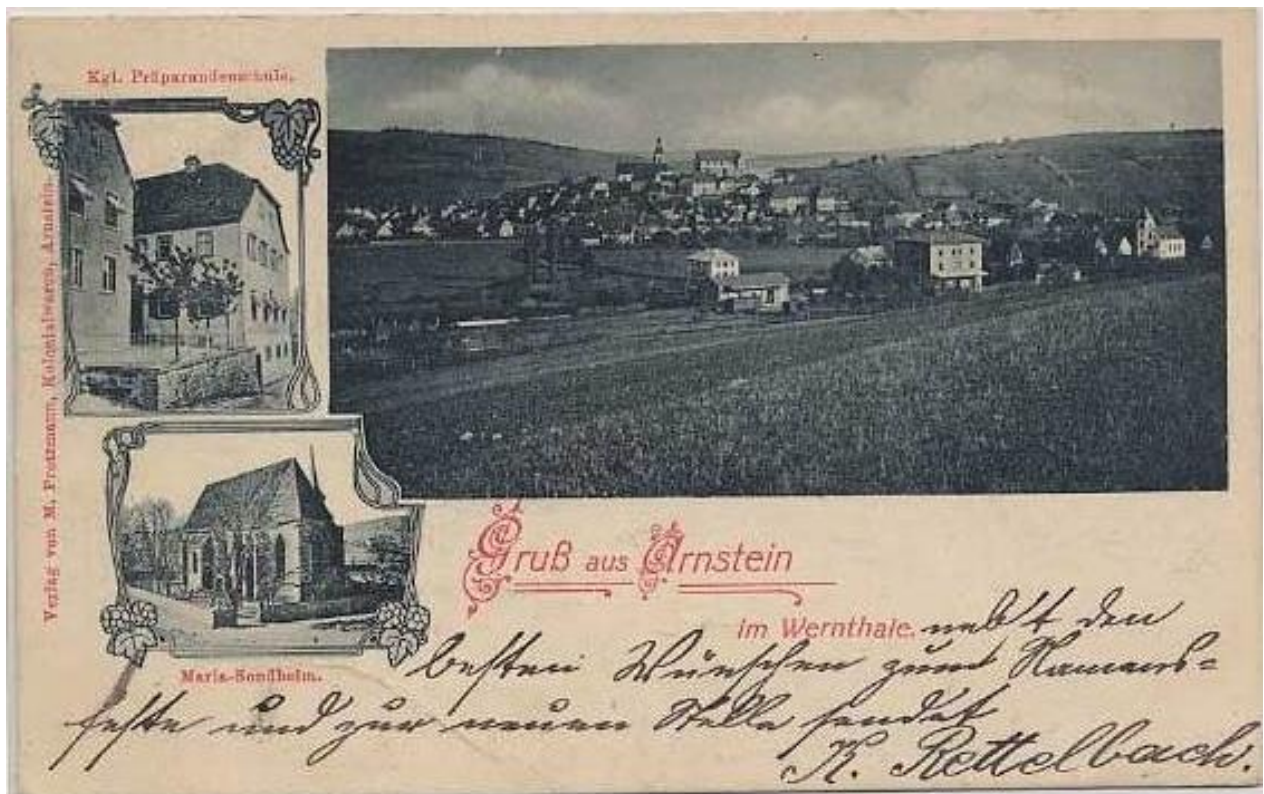 Kgl. Präparandenschule.
Verlag von M. Protzmann, Kolonialwaren, Arnstein.
Maria-Sondheim.
Gruß aus Arnstein
im Wernthale.
nebst den
besten Wünschen zum Namens=
feste und zur neuen Stelle sendet
K. Rettelbach.